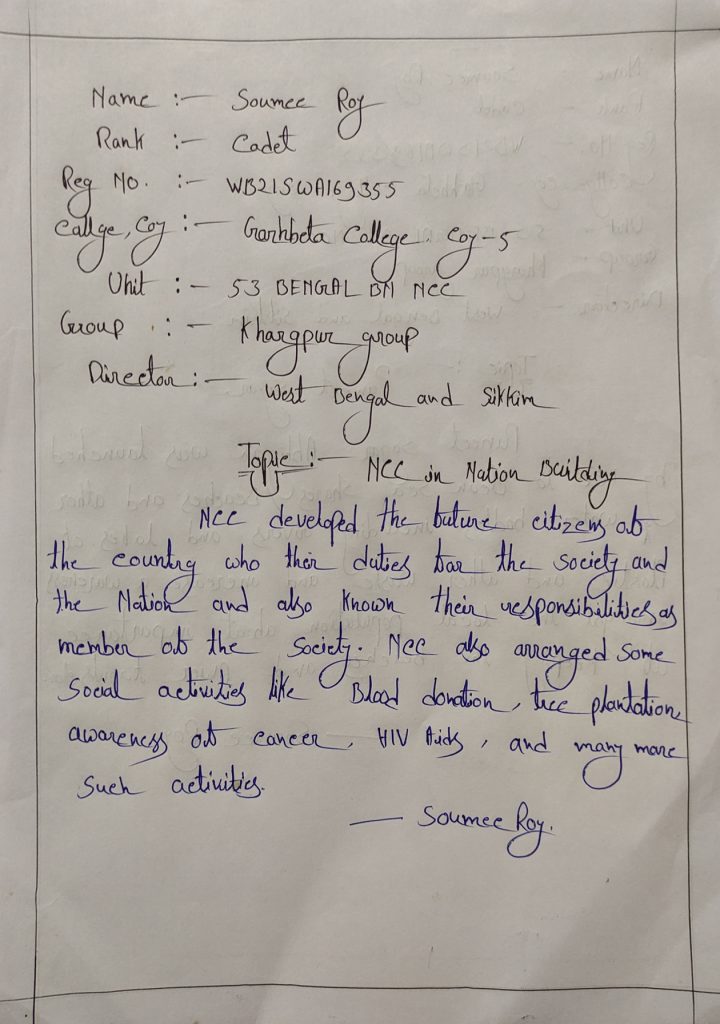 Name :— Soumee Roy
Rank :— Cadet
Reg No. :— WB21SWA169355
College, Coy :— Garhbeta College. Coy-5
Unit :— 53 BENGAL BN NCC
Group :— Khargpur group
Director :— West Bengal and Sikkim
Topic :— NCC in Nation Building
NCC developed the future citizens of
the country who their duties for the society and
the Nation and also known their responsibilities as
member of the society. NCC also arranged some
social activities like Blood donation, tree plantation,
awareness of cancer, HIV Aids, and many more
such activities.
— Soumee Roy.